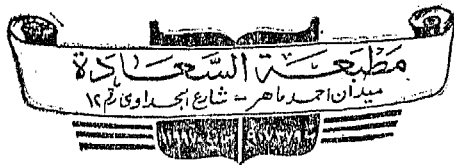 مطبعة السعادة
ميدان احمد ماهر - شارع الجداوى رقم ١٢